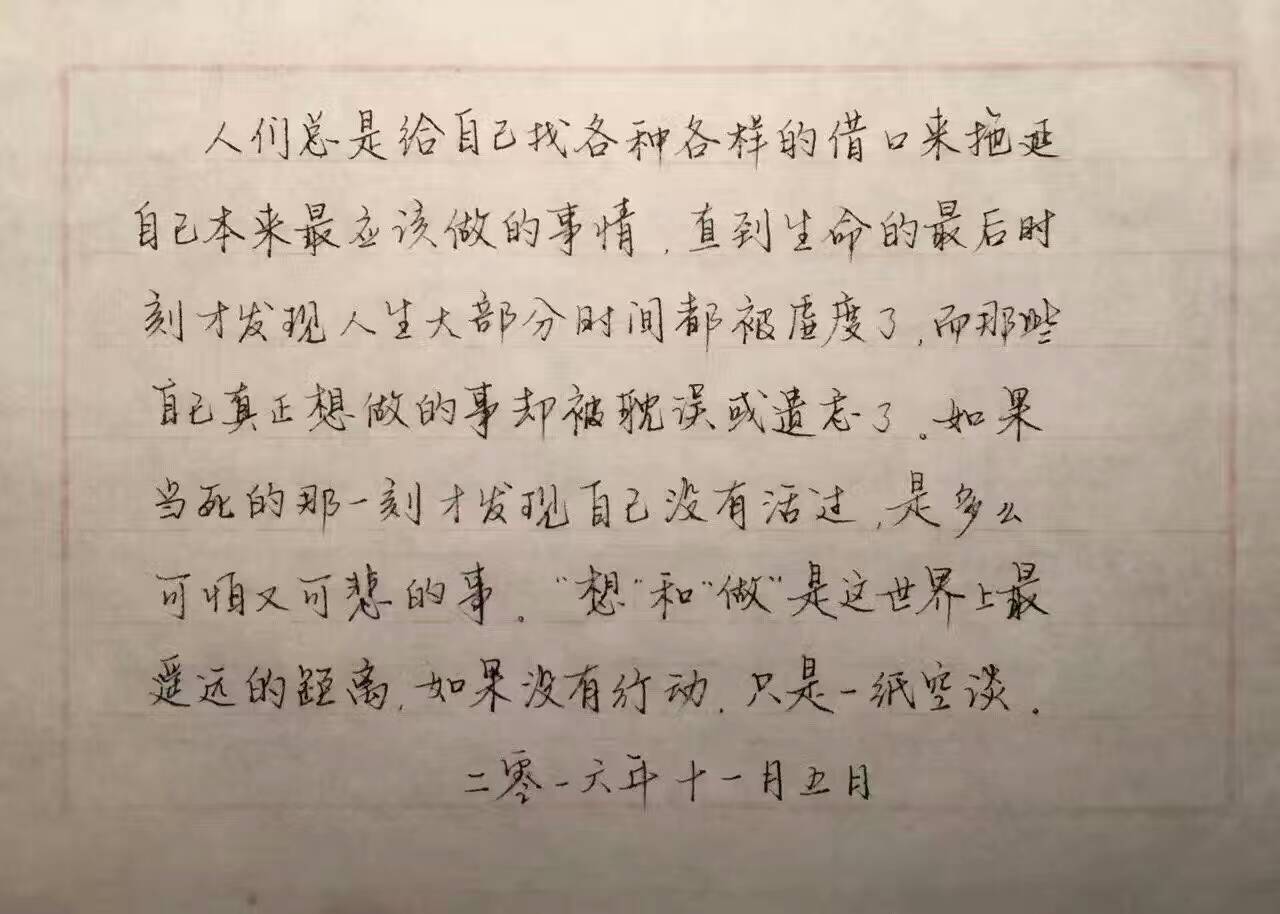 人们总是给自己找各种各样的借口来拖延
自己本来最应该做的事情,直到生命的最后时
刻才发现人生大部分时间都被虚度了,而那些
自己真正想做的事却被耽误或遗忘了。如果
当死的那一刻才发现自己没有活过,是多么
可怕又可悲的事。“想”和“做”是这世界上最
遥远的距离,如果没有行动,只是一纸空谈。
二零一六年十一月五日